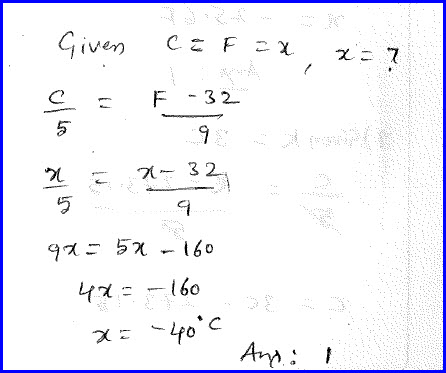 Given C = F = x, x = ?
C/5 = F - 32/9
x/5 = x - 32/9
9x = 5x - 160
4x = -160
x = -40°C
Ans: 1